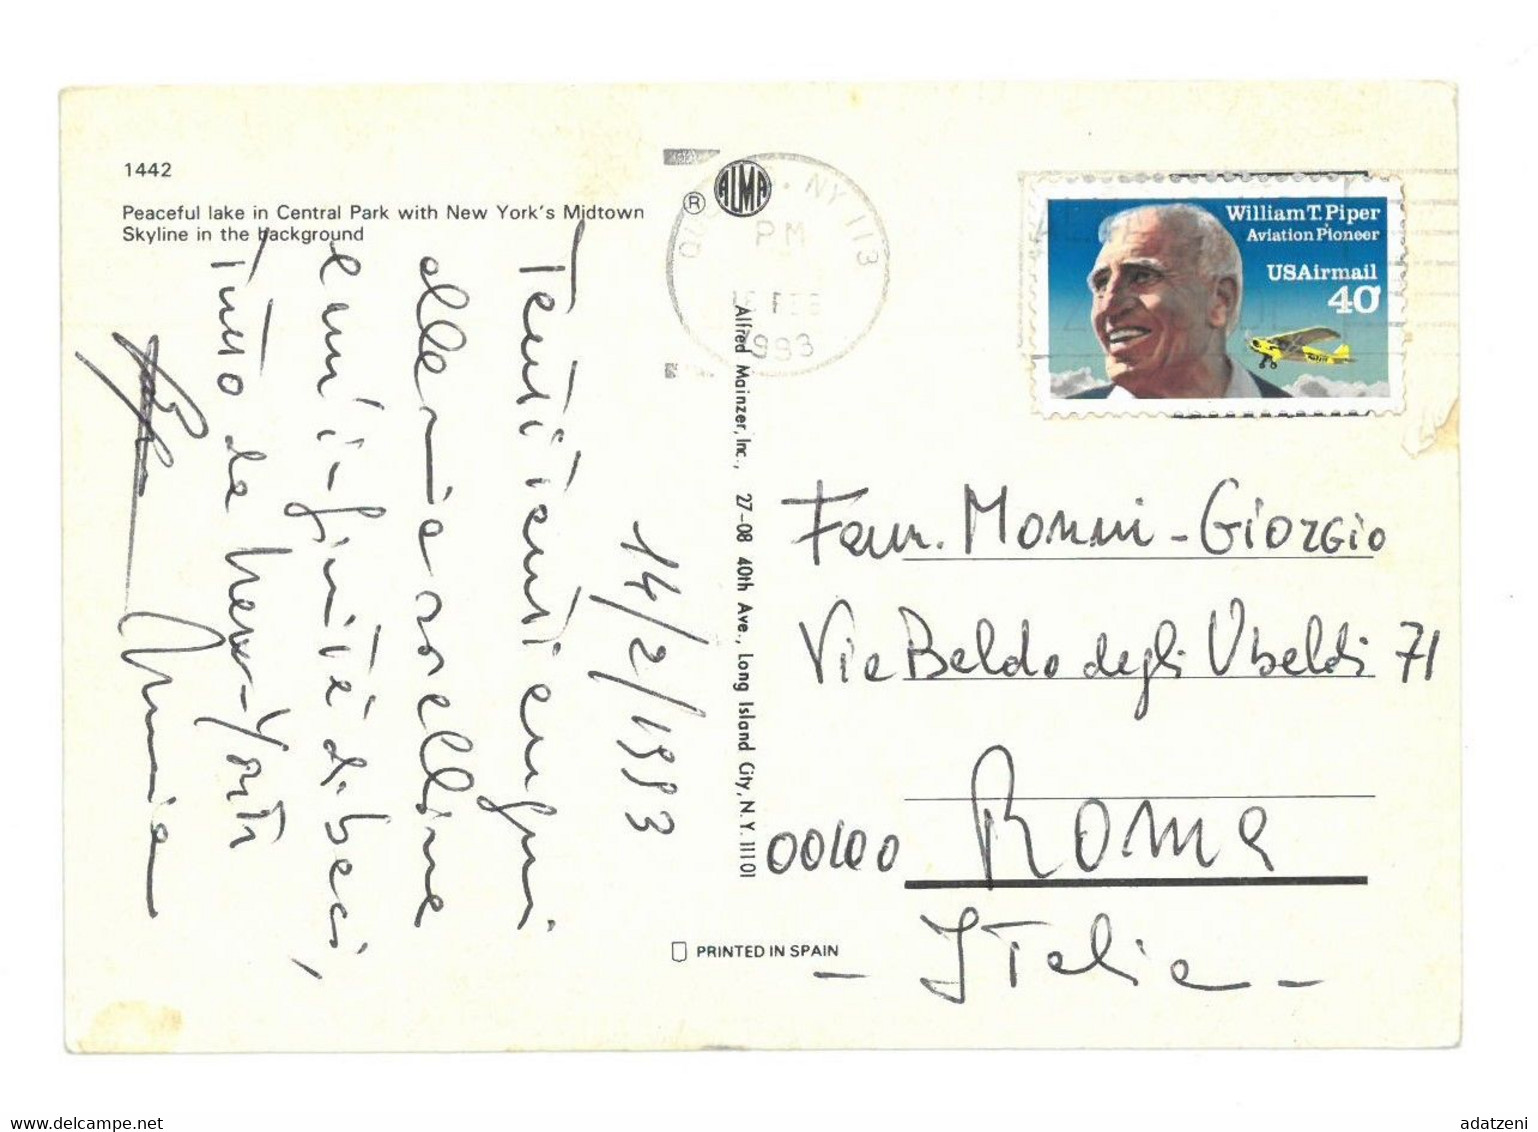 1442
Peaceful lake in Central Park with New York's Midtown
Skyline in the background
®
ALMA
NY 113
PM
FEB
1993
William T. Piper
Aviation Pioneer
USAirmail
40
14/2/1993
Tanti tanti auguri
alla mia sorellina
e un'infinità di baci,
Tutto da New-York
Alfred Mainzer, Inc., 27-08 40th Ave., Long Island City, N.Y. 11101
Fam. Monni - Giorgio
Via Baldo degli Ubaldi 71
00100 Roma
- Italia -
PRINTED IN SPAIN
adatzeni
delcampe.net